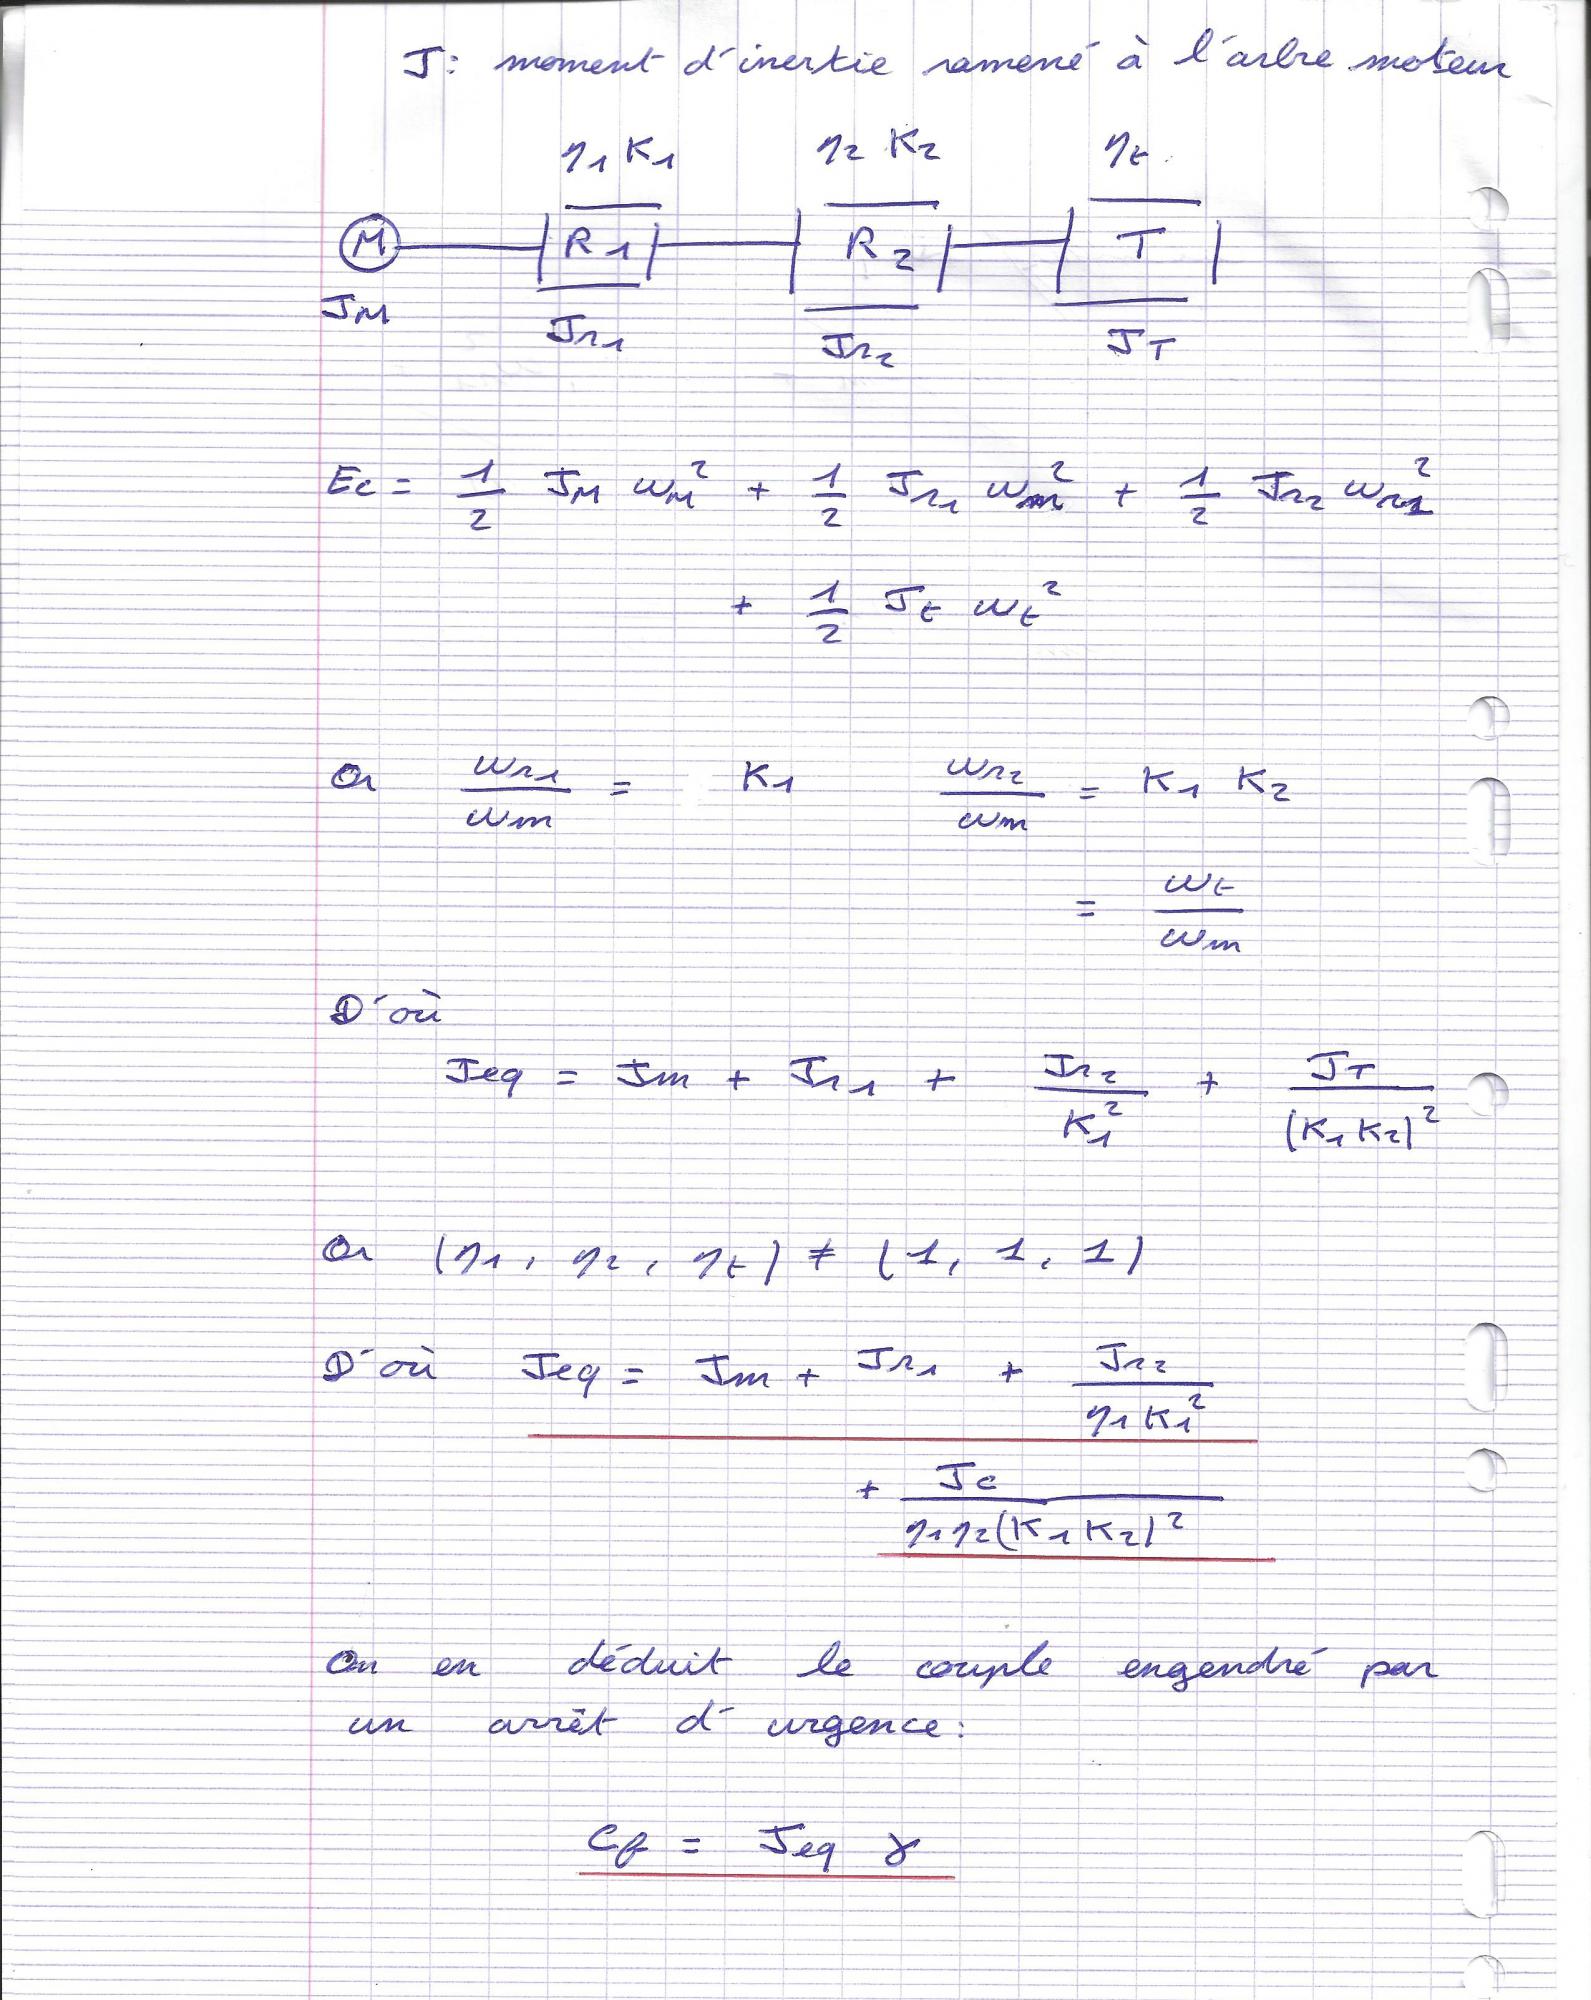 J : moment d'inertie ramené à l'arbre moteur
η1 K1 η2 K2 ηt
M R1 R2 T
JM Jr1 Jr2 JT
Ec = 1/2 JM ωM² + 1/2 Jr1 ωm² + 1/2 Jr2 ωr1²
+ 1/2 Jt ωt²
Or ωr1/ωm = K1 ωr2/ωm = K1 K2
= ωt/ωm
D'où
Jeq = Jm + Jr1 + Jr2/K1² + JT/(K1 K2)²
Or (η1, η2, ηt) ≠ (1, 1, 1)
D'où Jeq = Jm + Jr1 + Jr2/η1 K1²
+ Jc/η1 η2 (K1 K2)²
On en déduit le couple engendré par
un arrêt d'urgence :
Cf = Jeq γ